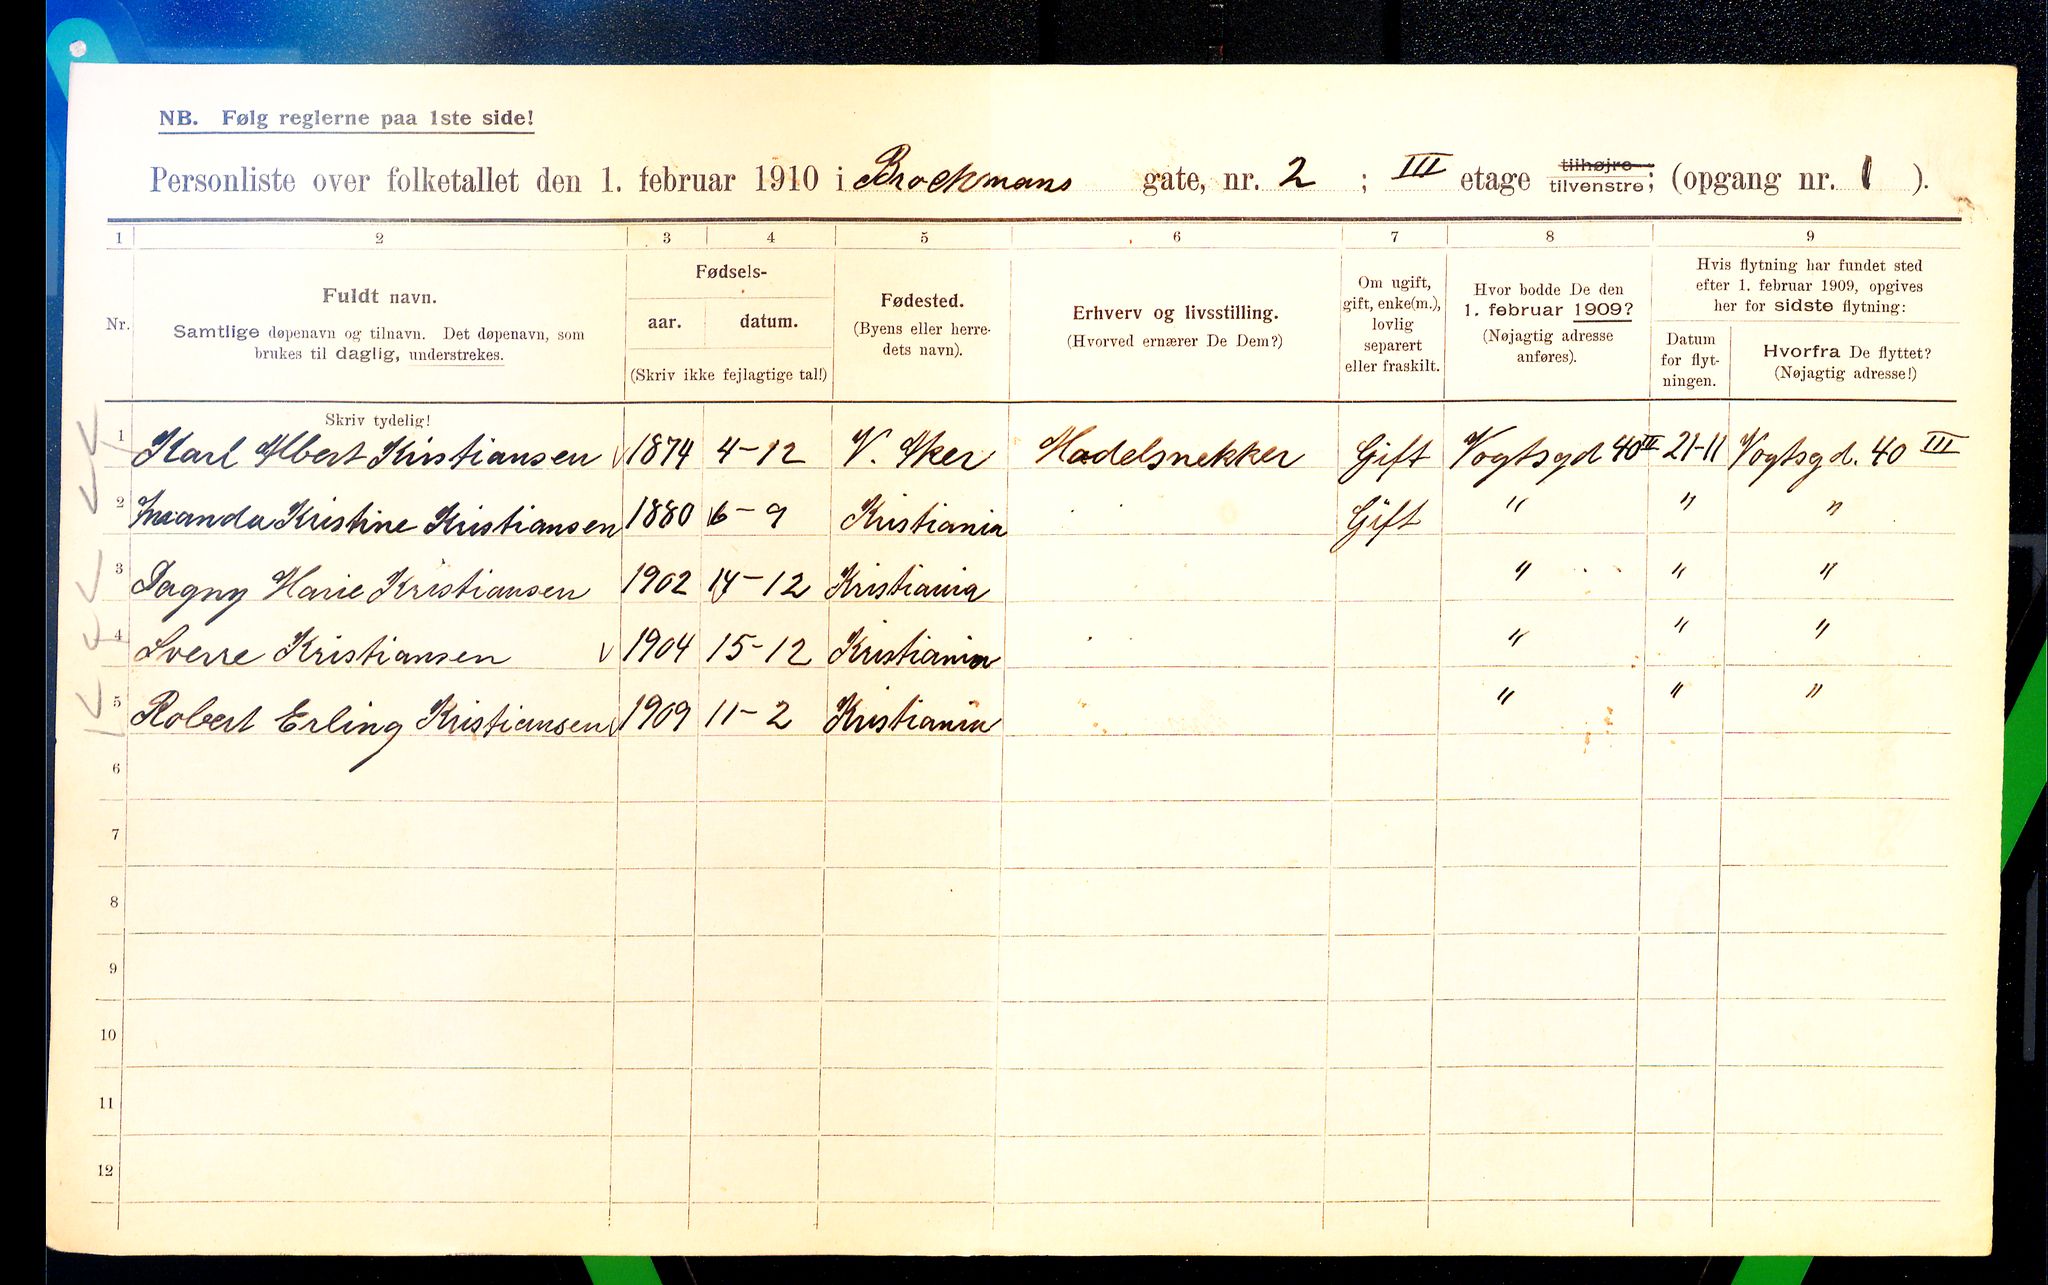 NB. Følg reglerne paa 1ste side!
Personliste over folketallet den 1. februar 1910 i Brockmans gate, nr. 2 ; III etage tilhøjre tilvenstre; (opgang nr. 1 ).
1 2 3 4 5 6 7 8 9
Nr.
Fuldt navn.
Samtlige døpenavn og tilnavn. Det døpenavn, som
brukes til daglig, understrekes.
Skriv tydelig!
Fødsels-
aar. datum.
(Skriv ikke fejlagtige tal!)
Fødested.
(Byens eller herre-
dets navn).
Erhverv og livsstilling.
(Hvorved ernærer De Dem?)
Om ugift,
gift, enke(m.),
lovlig
separert
eller fraskilt.
Hvor bodde De den
1. februar 1909?
(Nøjagtig adresse
anføres).
Hvis flytning har fundet sted
efter 1. februar 1909, opgives
her for sidste flytning:
Datum
for flyt-
ningen.
Hvorfra De flyttet?
(Nøjagtig adresse!)
1 Karl Albert Kristiansen 1874 4-12 V. Aker Modelsnekker Gift Vogtsgd 40 III 21-11 Vogtsgd. 40 III
2 Kristine Kristiansen 1880 6-9 Kristiania Gift " " "
3 Dagny Marie Kristiansen 1902 14-12 Kristiania " " "
4 Sverre Kristiansen 1904 15-12 Kristiania " " "
5 Robert Erling Kristiansen 1909 11-2 Kristiania " " "
6
7
8
9
10
11
12